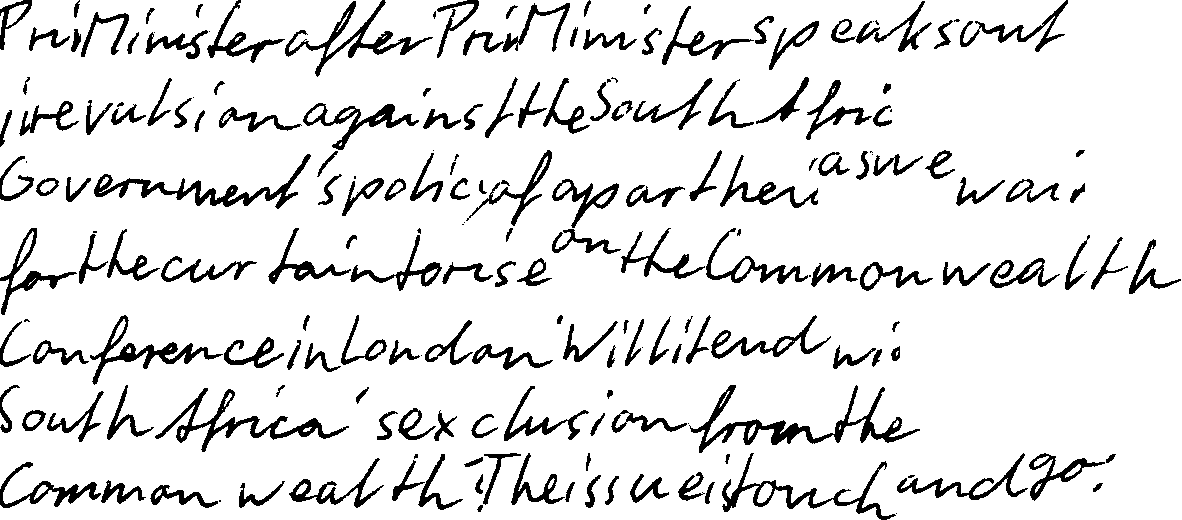 Prim Minister after Prim Minister speaks out
in revulsion against the South Afric
Government's policy of apartheid as we wait
for the curtain to rise on the Commonwealth
Conference in London. Will it end wit
South Africa's exclusion from the
Commonwealth? The issue is touch and go.